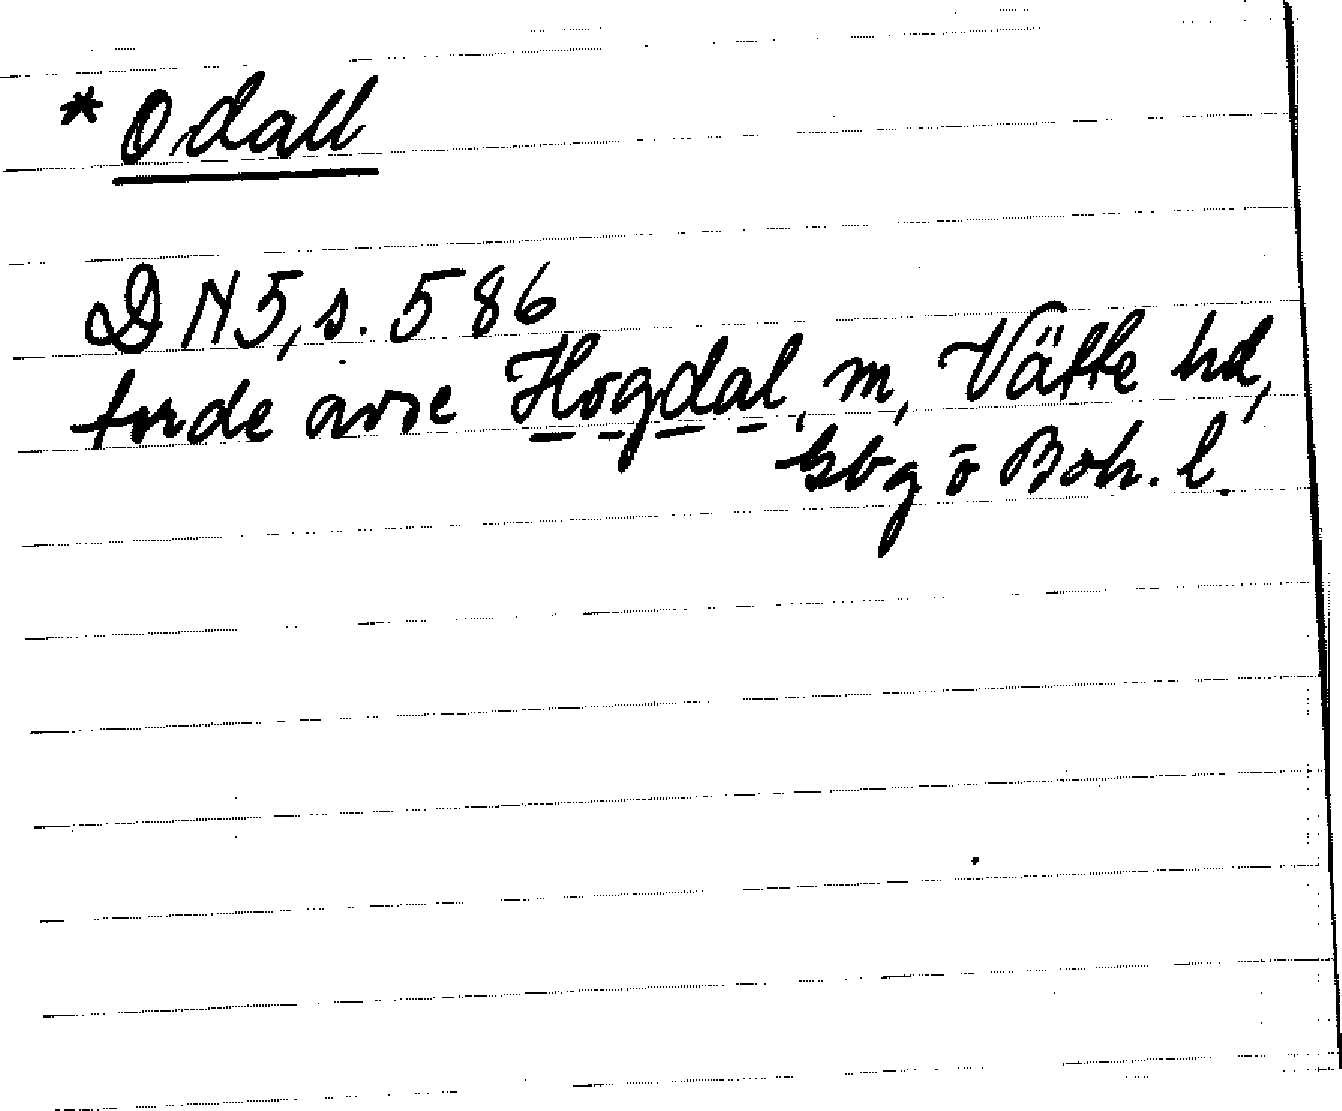 * Odall
DN 5, s. 586
torde avse Hogdal, m, Vätte hd,
Gbg o Boh. l.